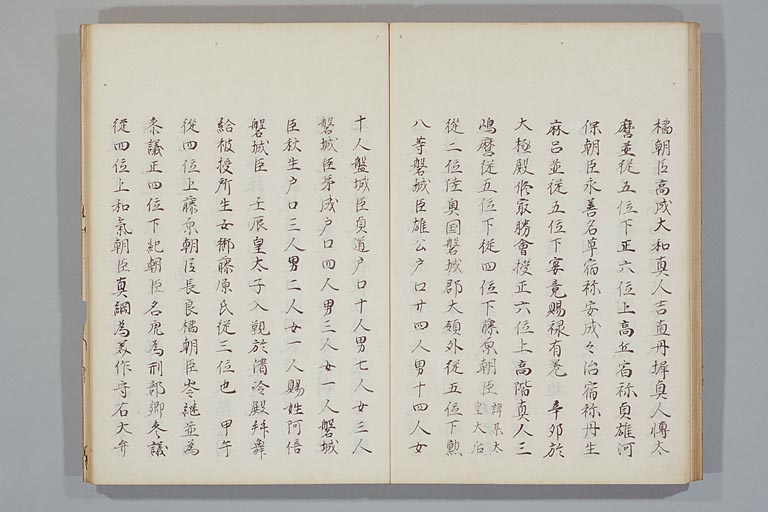 橘朝臣高成大和真人吉直丹墀真人愽太
麿並從五位下正六位上高丘宿祢貞雄河
保朝臣永善名草宿祢安成々治宿祢丹生
麻呂並從五位下宴竟賜禄有差　辛夘於
大極殿脩最勝會授正六位上高階真人三
嶋麿從五位下從四位下藤原朝臣諱某太皇大后
從二位陸奥国磐城郡大領外從五位下勲
八等磐城臣雄公戸口廿四人男十四人女
十人磐城臣貞道戸口十人男七人女三人
磐城臣弟成戸口四人男三人女一人磐城
臣秋生戸口三人男二人女一人賜姓阿倍
磐城臣　壬辰皇太子入覲於清冷殿拜舞
給被授所生女御藤原氏從三位也　甲午
從四位上藤原朝臣長良橘朝臣岑継並為
參議正四位下紀朝臣名虎為刑部卿參議
從四位上和氣朝臣真綱為美作守右大弁